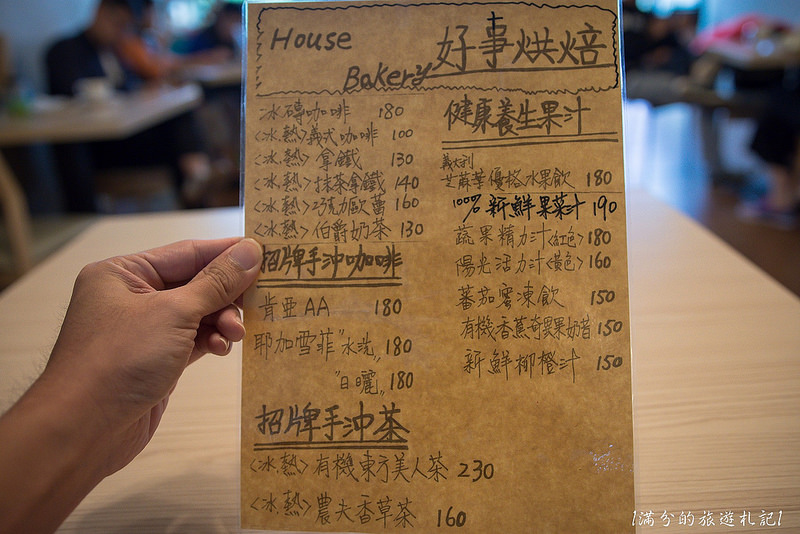 House
Bakery 好事烘焙
冰磚咖啡 180
<冰.熱>義式咖啡 100
<冰.熱>拿鐵 130
<冰.熱>抹茶拿鐵 140
<冰.熱>巧克力歐蕾 160
<冰.熱>伯爵奶茶 130
招牌手沖咖啡
肯亞AA 180
耶加雪菲"水洗" 180
"日曬" 180
招牌手沖茶
<冰.熱>有機東方美人茶 230
<冰.熱>農夫香草茶 160
健康養生果汁
義大利
芝麻華優格水果飲 180
100% 新鮮果菜汁 190
蔬果精力汁<紅色>180
陽光活力汁<黃色>160
蕃茄蜜凍飲 150
有機香蕉奇異果奶昔 150
新鮮柳橙汁 150
[滿分的旅遊札記]